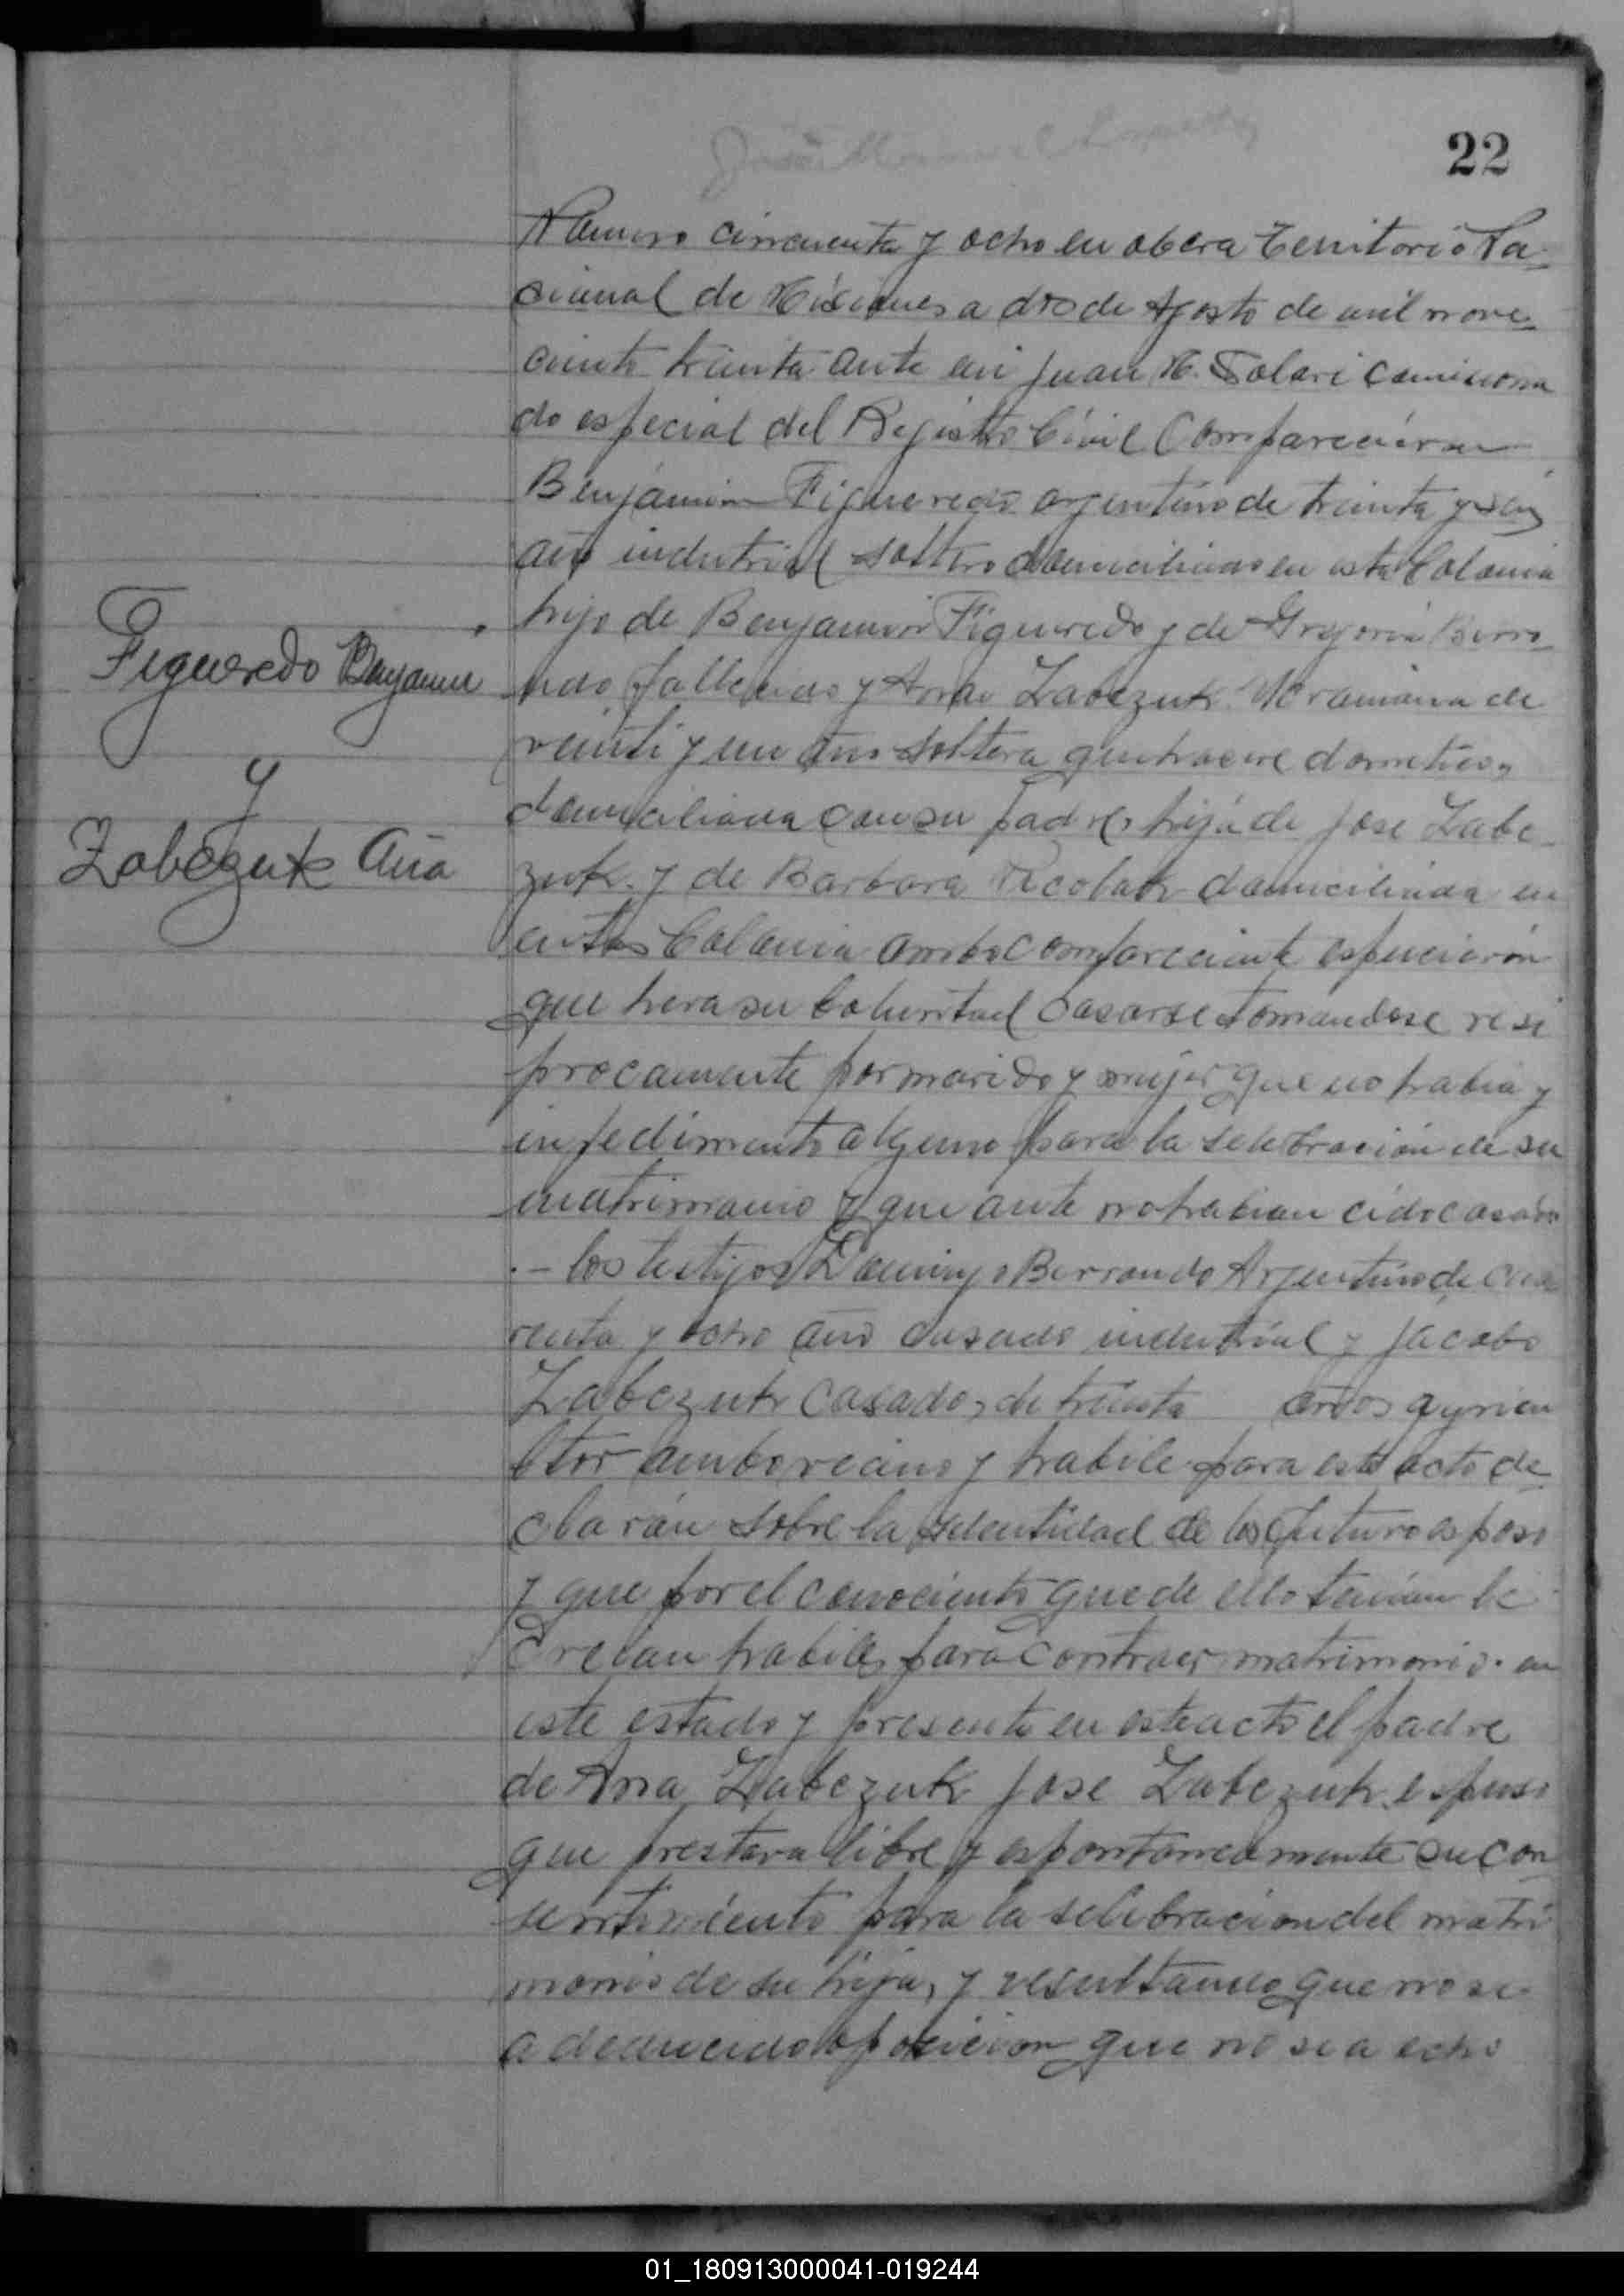 22
Numero cincuenta y ocho en obera Territorio Na-
cional de Misiones a dos de Agosto de mil nove-
ciento trinta ante mi Juan M. Solari comisiona
do especial del Registro Civil Comparecieron
Benjamin Figueredo argentino de treinta y seis
año industrial soltero domiciliado en esta Colonia
hijo de Benjamin Figueredo y de Gregoria Berro
Figueredo Benjamin
ndo, fallecido y Ana Zabczuk Ucraniana de
veinti y un año soltera quehacere domestico,
y
domiciliada con su padre, hija de Jose Zabc-
Zabczuk Ana
zuk. y de Barbara domiciliada en
Colonia ambo compareciente espucieron
que hera su boluntad casarse tomandose resi
procamente por marido y mujer que no habia y
inpedimento alguno para la selebracion de su
matrimonio y que ante no habian cido casado
.- los testigos Domingo Berrondo Argentino de cua
renta y ocho año casado industrial y Jacobo
Zabczuk casado, de treinta años agricu
ltor ambo vecino y habile para este acto de-
claran sobre la identidad de los futuro esposo
y que por el conociento que de ello tenian lo
creian habiles para contraer matrimonio. en
este estado y presente en este acto el padre
de Ana Zabczuk Jose Zabczuk espuso
que prestava libre y espontaneamente su con
sentimiento para la selebracion del matri
monio de su hija, y resultando que no se
a deducido oposicion que no se a echo
01_180913000041-019244